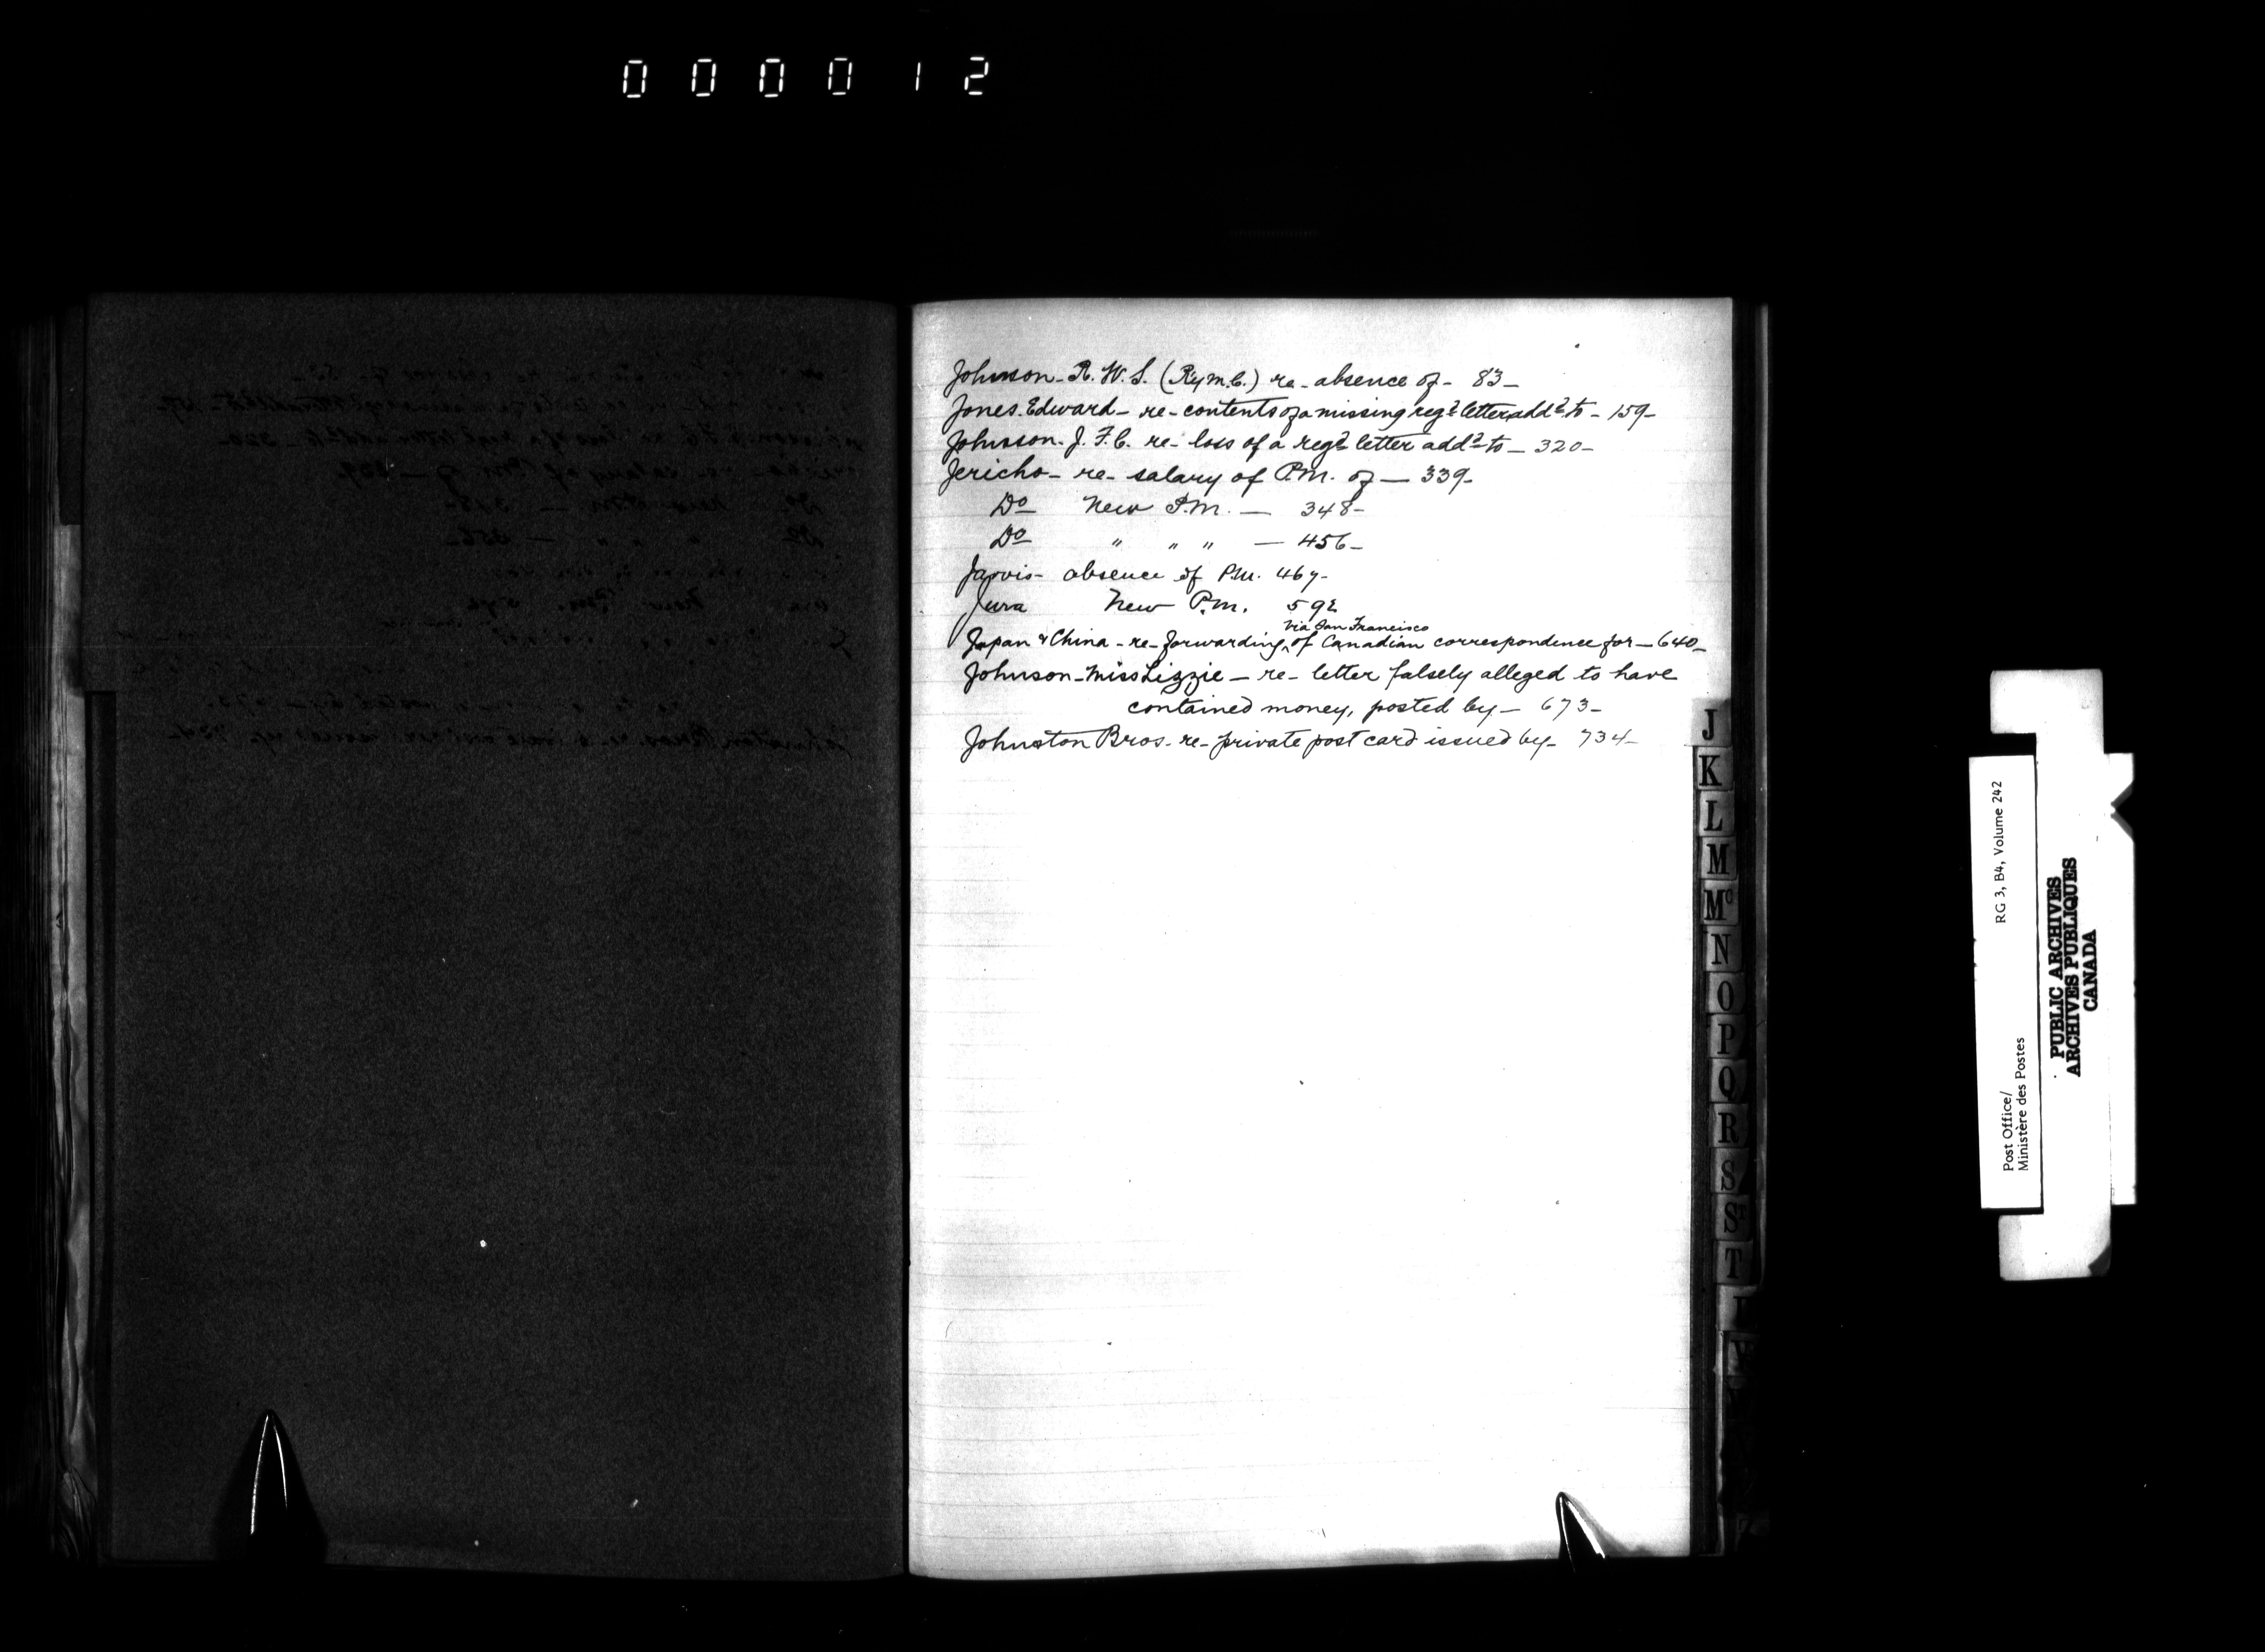 000012
Johnson - R. W. S. (Ry m.c.) re - absence of - 83 -
Jones. Edward - re - contents of a missing regd letter addd to - 159 -
Johnson. J. F. C. re - loss of a regd letter addd to - 320 -
Jericho - re - salary of P.M. of - 339 -
Do New P.M. - 348 -
Do " " " - 456 -
Jarvis - absence of P.M. 467 -
Jura New P.M. 592
via San Francisco
Japan & China - re - forwarding ^ of Canadian correspondence for - 640 -
Johnson - Miss Lizzie - re - letter falsely alleged to have
contained money, posted by - 673 -
Johnston Bros. - re - private post card issued by - 734 -
J
K
L
M
Mc
N
O
P
Q
R
S
St
T
Post Office/ RG 3, B4, Volume 242
Ministère des Postes
PUBLIC ARCHIVES
ARCHIVES PUBLIQUES
CANADA